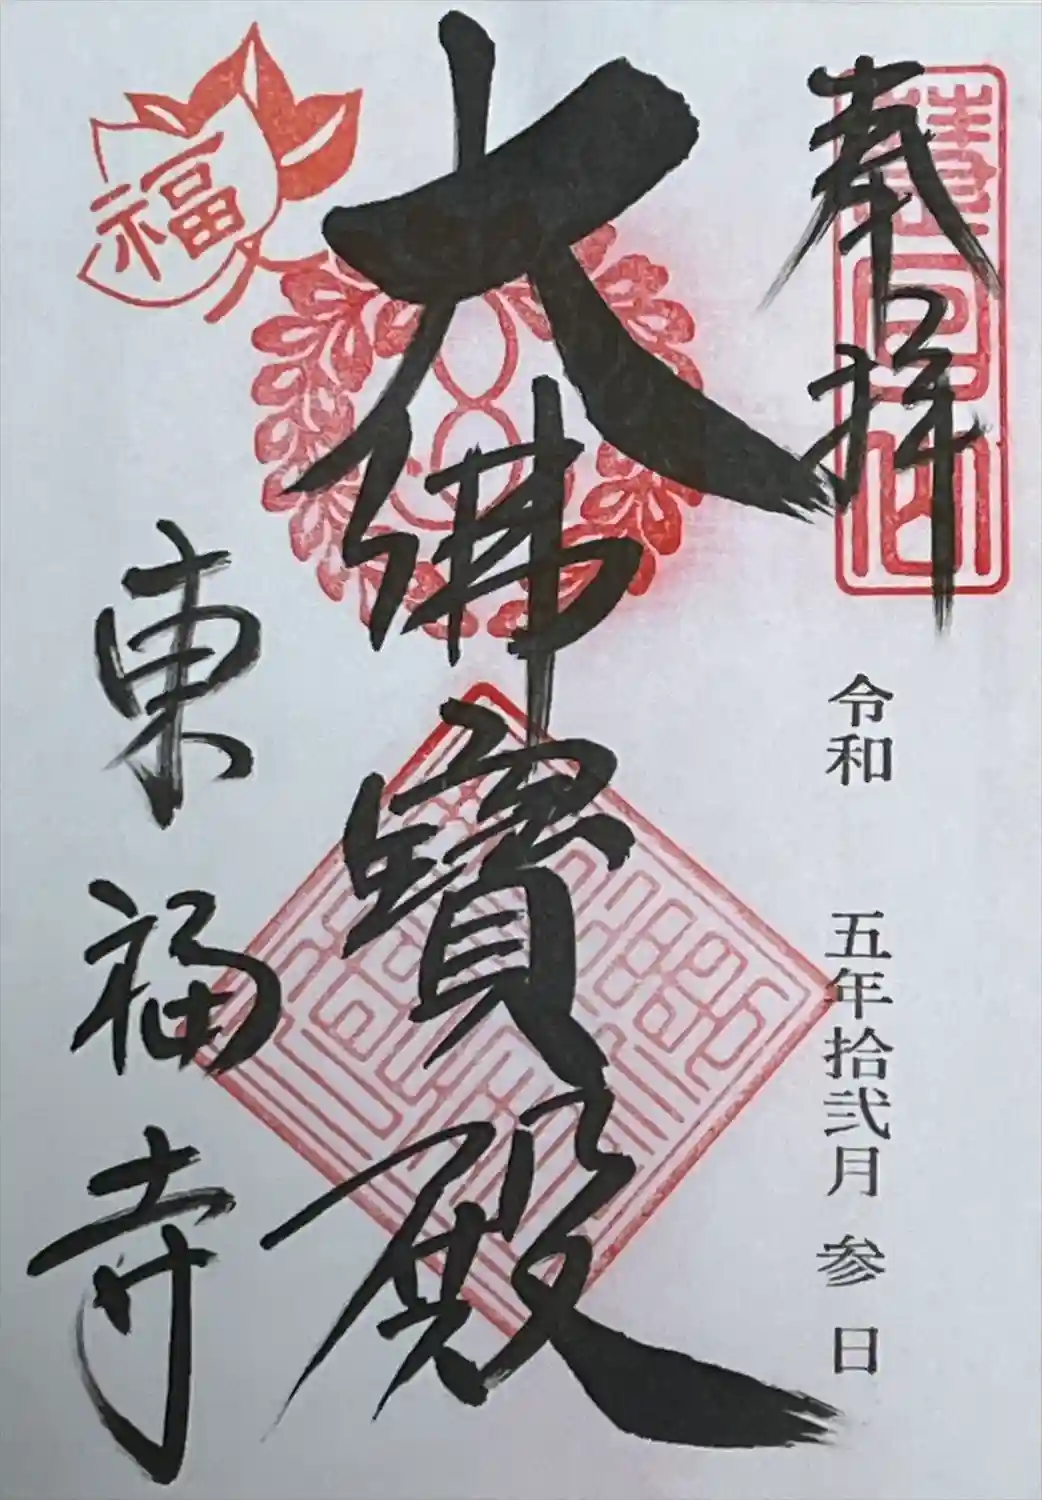 奉拝
慧日山
令和 五年拾弐月 参 日
大佛寶殿
福
東福寺